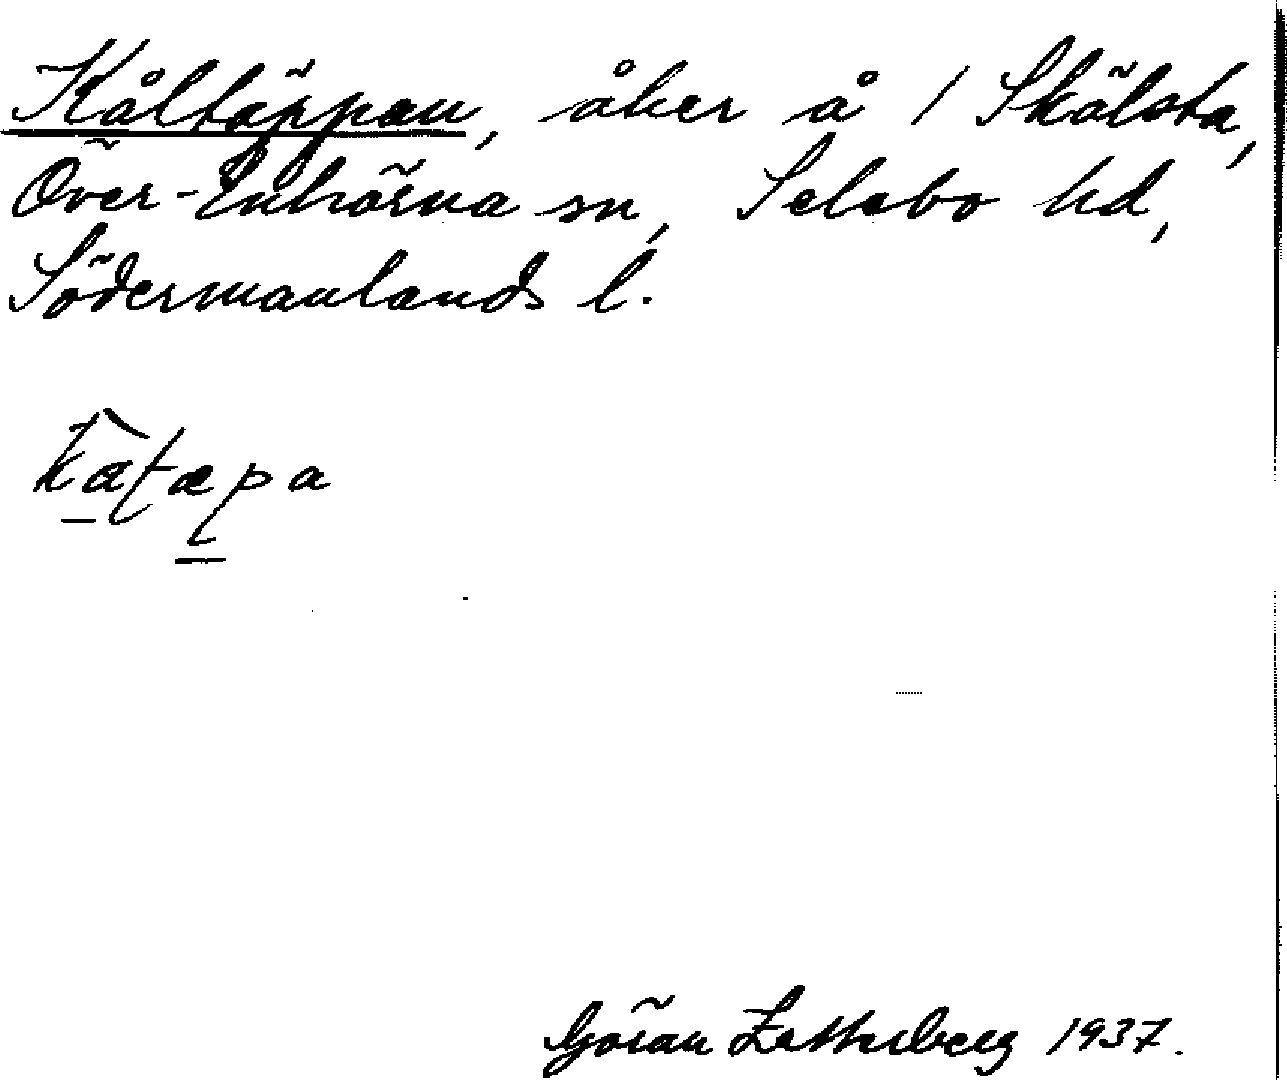 Kåltäppan, åker å 1 Skälsta,
Över-Enhörna sn, Selebo hd,
Södermanlands l.
Göran Zetterberg 1937.